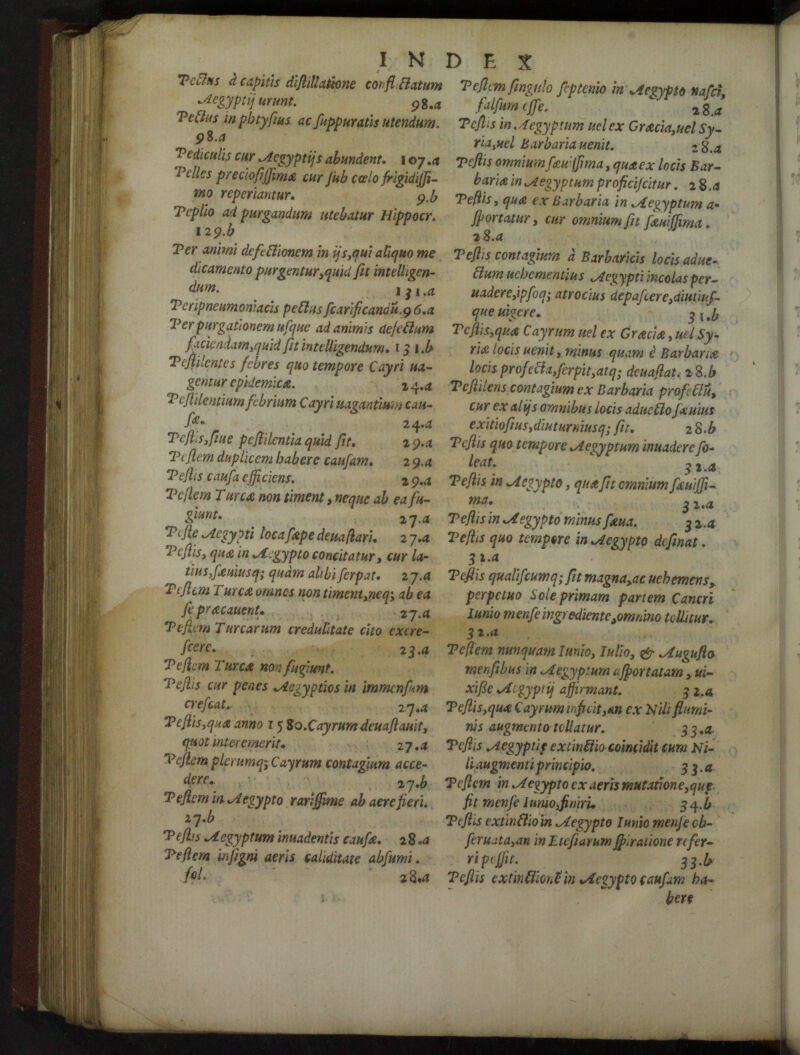 INDEX
Pectus à capitis distillatione conflictatum
Aegyptij urunt. 98.a
Pectus in phtysius ac suppuratis utendum.
98.a
Pediculis cur Aegyptijs abundent. 107.a
Pelles preciosissimæ cur sub cœlo frigidissi-
mo reperiantur. 9.b
Peplio ad purgandum utebatur Hippocr.
129.b
Per animi defectionem in ijs,qui aliquo me
dicamento purgentur,quid sit intelligen-
dum. 131.a
Peripneumoniacis pectus scarificandũ.96.a
Per purgationem usque ad animis defectum
faciendam,quid sit intelligendum. 131.b
Pestilentes febres quo tempore Cayri ua-
gentur epidemicæ. 24.a
Pestilentium febrium Cayri uagantium cau-
sæ. 24.a
Pestis,siue pestilentia quid sit. 29.a
Pestem duplicem habere causam. 29.a
Pestis causa efficiens. 29.a
Pestem Turcæ non timent, neque ab ea fu-
giunt. 27.a
Peste Aegypti loca sæpe deuastari. 27.a
Pestis, quæ in Aegypto concitatur, cur la-
tius,sæuiusq; quàm alibi serpat. 27.a
Pestem Turcæ omnes non timent,neq; ab ea
se præcauent. 27.a
Pestem Turcarum credulitate cito excre-
scere. 23.a
Pestem Turcæ non fugiunt.
Pestis cur penes Aegyptios in immensum
crescat. 27.a
Pestis,quæ anno 1580.Cayrum deuastauit,
quot interemerit. 27.a
Pestem plerumq; Cayrum contagium acce-
dere. 27.b
Pestem in Aegypto rarissime ab aere fieri.
27.b
Pestis Aegyptum inuadentis causæ. 28.a
Pestem insigni aeris caliditate absumi.
fol. 28.a
Pestem singulo septenio in Aegypto nasci,
falsum esse. 28.a
Pestis in Aegyptum uel ex Græcia,uel Sy-
ria,uel Barbaria uenit. 28.a
Pestis omnium sæuissima, quæ ex locis Bar-
bariæ in Aegyptum proficiscitur. 28.a
Pestis, quæ ex Barbaria in Aegyptum a-
sportatur, cur omnium sit sæuissima.
28.a
Pestis contagium à Barbaricis locis adue-
ctum uehementius Aegypti incolas per-
uadere,ipsoq; atrocius depascere,diutius-
que uigere. 31.b
Pestis,quæ Cayrum uel ex Græciæ, uel Sy-
riæ locis uenit, minus quam è Barbariæ
locis profecta,serpit,atq; deuastat. 28.b
Pestilens contagium ex Barbaria profectũ,
cur ex alijs omnibus locis aduecto sæuius
exitiosius,diuturniusq; sit. 28.b
Pestis quo tempore Aegyptum inuadere so-
leat. 32.a
Pestis in Aegypto, quæ sit omnium sæuissi-
ma. 32.a
Pestis in Aegypto minus sæua. 32.a
Pestis quo tempore in Aegypto desinat.
32.a
Pestis qualiscumq; sit magna,ac uehemens,
perpetuo Sole primam partem Cancri
Iunio mense ingrediente,omnino tollitur.
32.a
Pestem nunquam Iunio, Iulio, & Augusto
mensibus in Aegyptum asportatam, ui-
xisse Aegyptij affirmant. 32.a
Pestis,quæ Cayrum inficit,an ex Nili flumi-
nis augmento tollatur. 33.a
Pestis Aegyptiæ extinctio coincidit cum Ni-
li augmenti principio. 33.a
Pestem in Aegypto ex aeris mutatione,quę
fit mense Iunio,finiri. 34.b
Pestis extinctio in Aegypto Iunio mense ob-
seruata,an in Etesiarum spiratione refer-
ri possit. 33.b
Pestis extinctionẽ in Aegypto causam ha-
bere